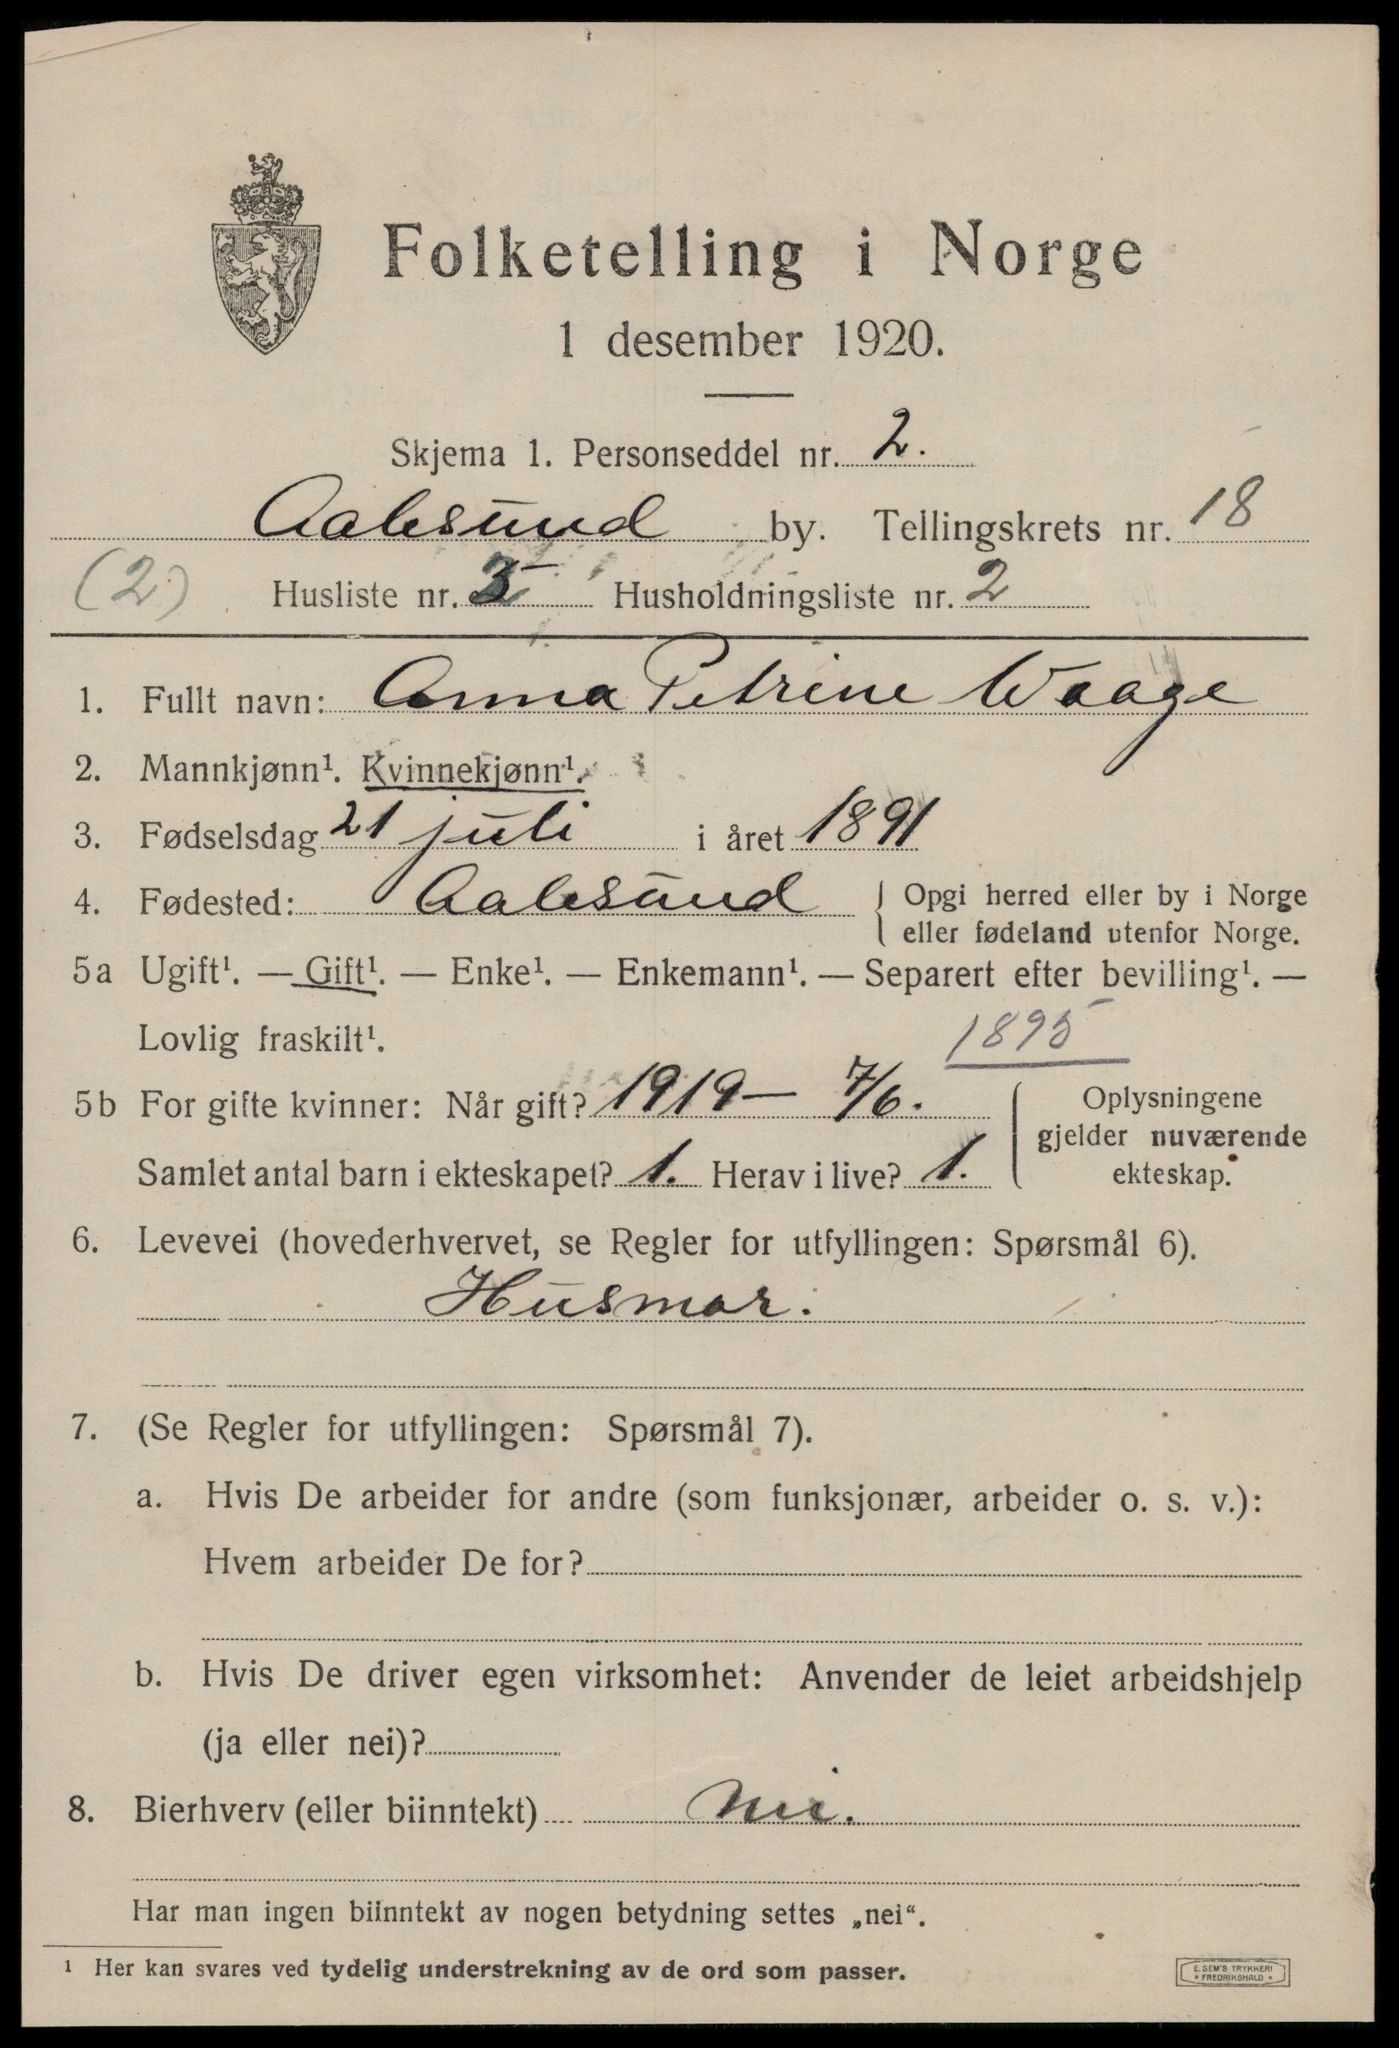 Folketelling i Norge
1 desember 1920.
Skjema 1. Personseddel nr. 2.
Aalesund by. Tellingskrets nr. 18
(2) Husliste nr. Husholdningsliste nr. 2
1. Fullt navn: Anna Petrine Waage
2. Mannkjønn¹. Kvinnekjønn¹.
3. Fødselsdag 21 juli i året 1891
4. Fødested: Aalesund { Opgi herred eller by i Norge
eller fødeland utenfor Norge.
5a Ugift¹. — Gift¹. — Enke¹. — Enkemann¹. — Separert efter bevilling¹. —
Lovlig fraskilt¹. 1895
5b For gifte kvinner: Når gift? 1919 — 7/6. Oplysningene
gjelder nuværende
Samlet antal barn i ekteskapet? 1. Herav i live? 1. ekteskap.
6. Levevei (hovederhvervet, se Regler for utfyllingen: Spørsmål 6).
Husmor.
7. (Se Regler for utfyllingen: Spørsmål 7).
a. Hvis De arbeider for andre (som funksjonær, arbeider o. s. v.):
Hvem arbeider De for?
b. Hvis De driver egen virksomhet: Anvender de leiet arbeidshjelp
(ja eller nei)?
8. Bierhverv (eller biinntekt) Nei.
Har man ingen biinntekt av nogen betydning settes „nei“.
¹ Her kan svares ved tydelig understrekning av de ord som passer.
E. SEM'S TRYKKERI
FREDRIKSHALD